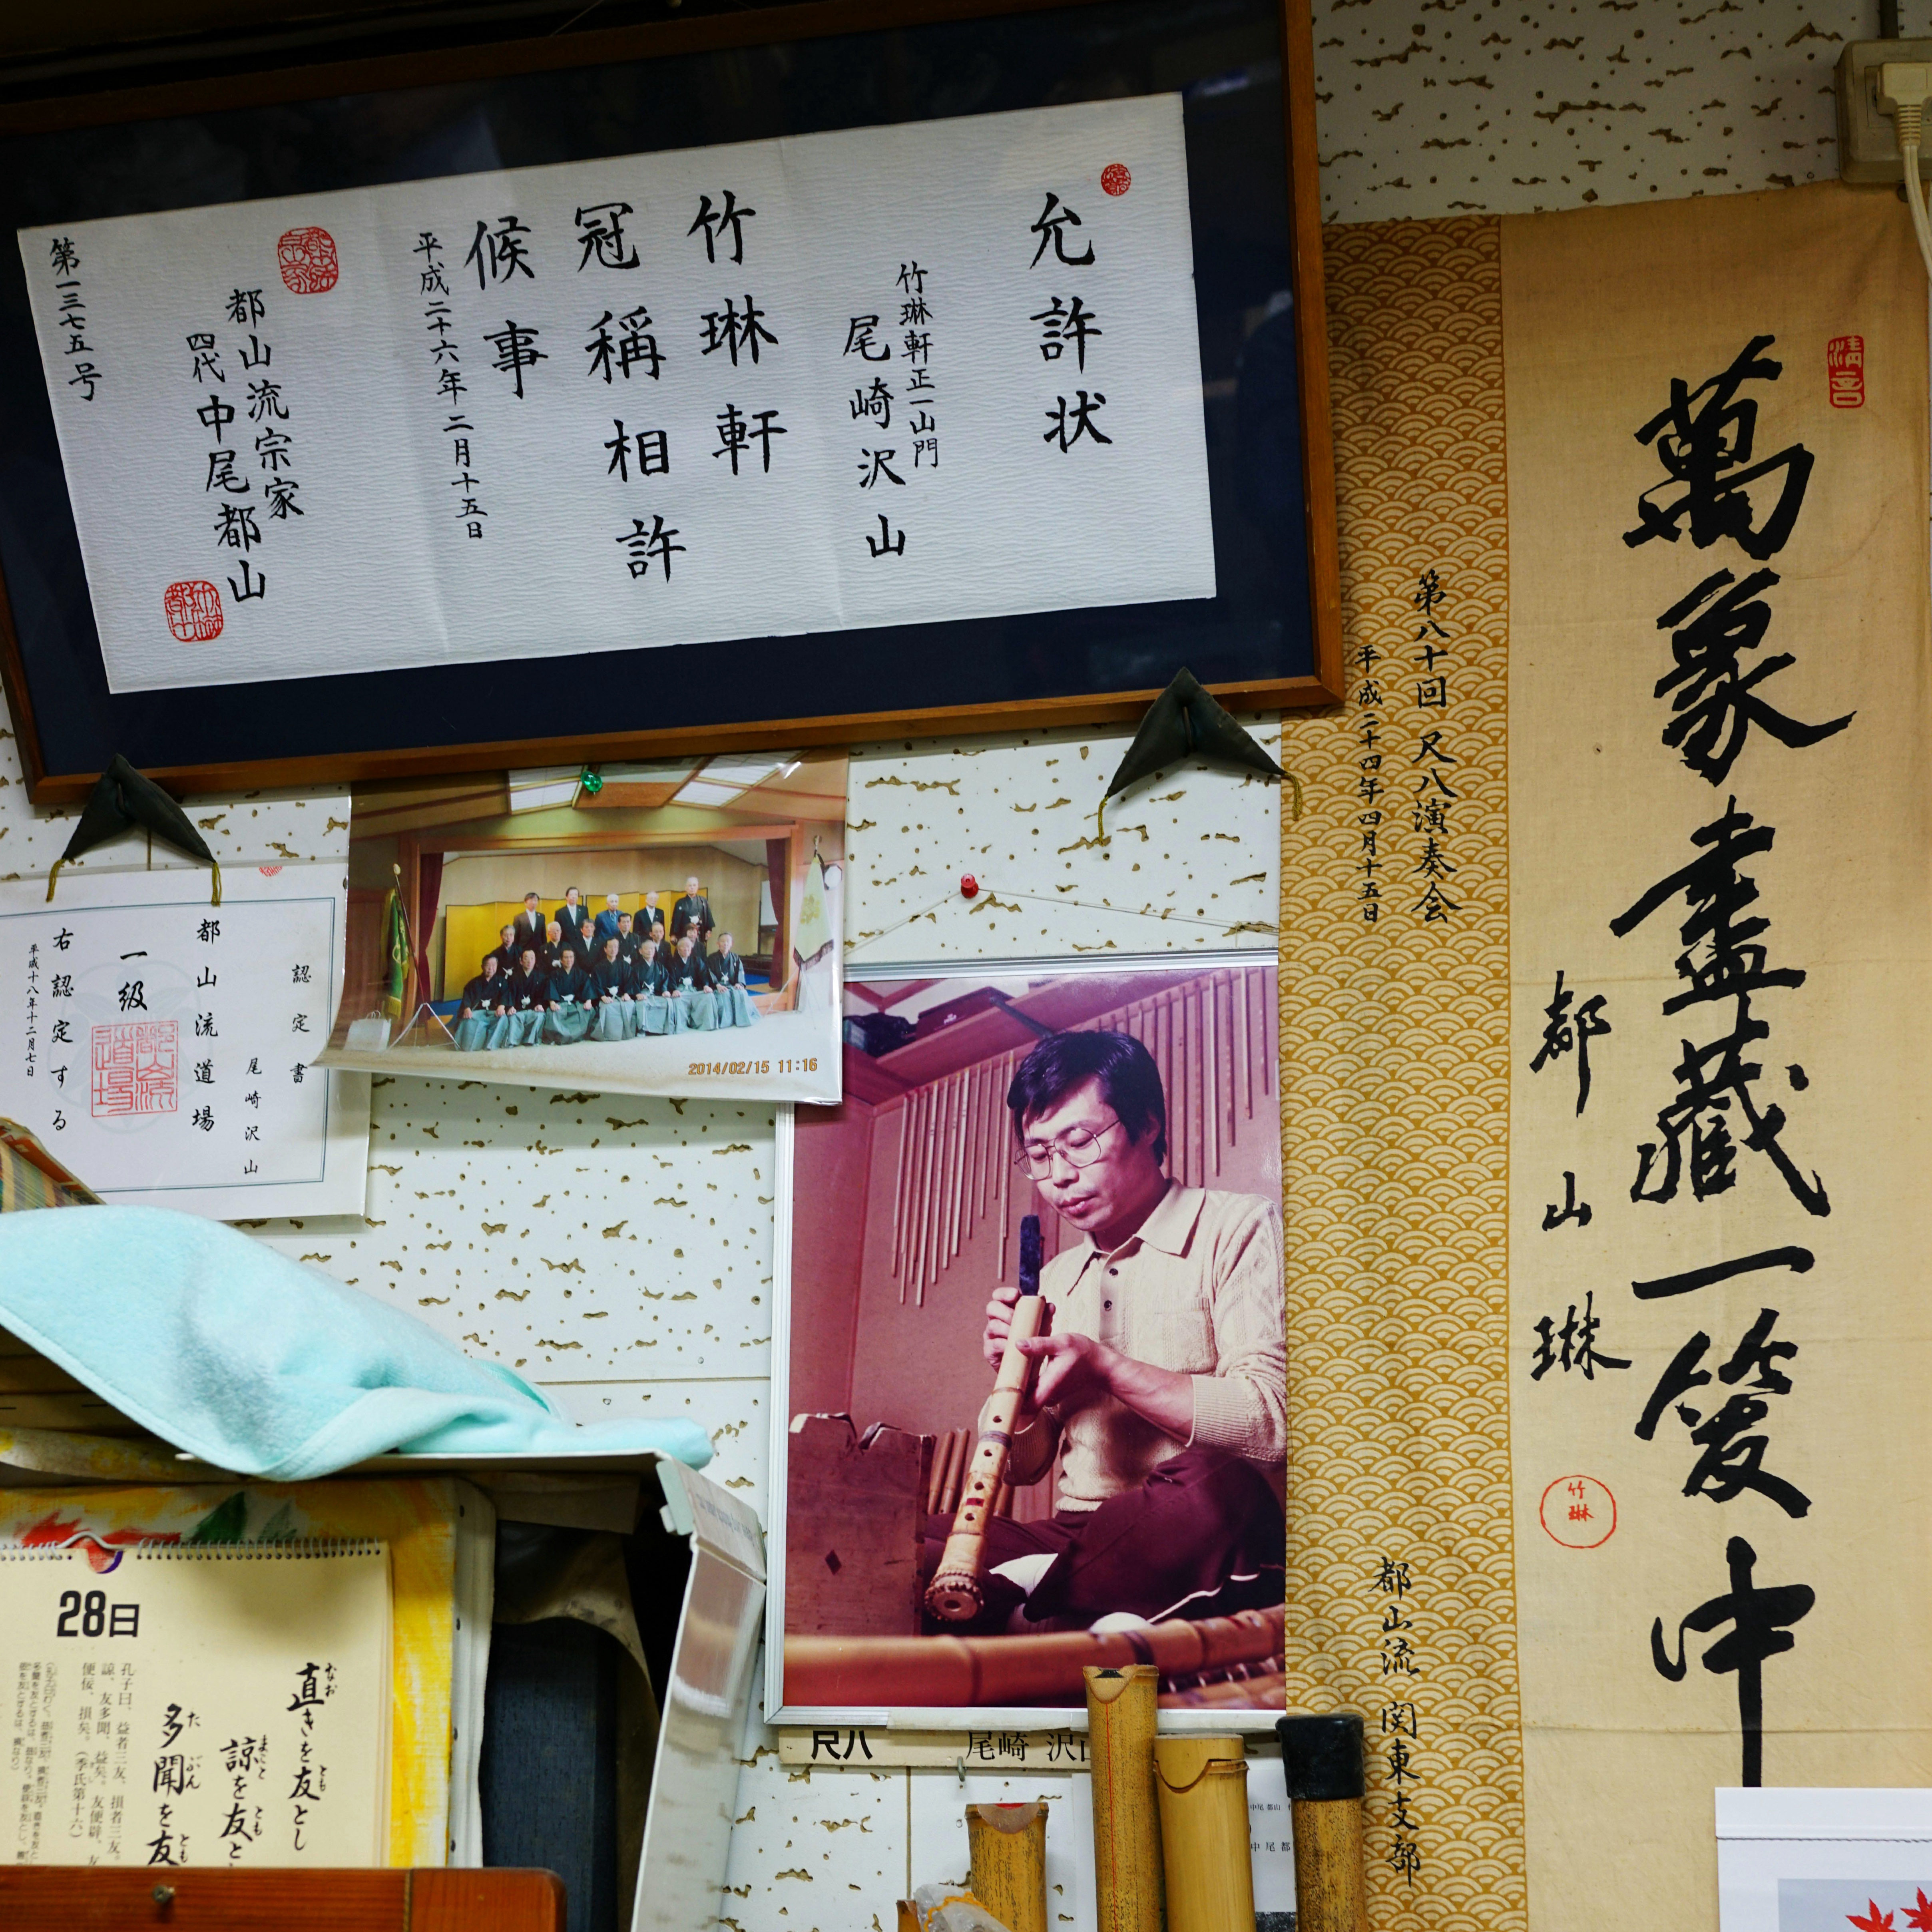 允許状
竹琳軒正一山門
尾崎沢山
竹琳軒
冠稱相許
候事
平成二十六年二月十五日
都山流宗家
四代 中尾都山
第一三七五号
萬象盡藏一管中
都山琳
清音
竹琳
第八十回 尺八演奏会
平成二十四年四月十五日
都山流 関東支部
認定書
尾崎沢山
都山流道場
一級
右認定する
平成十八年十二月七日
2014/02/15 11:16
尺八
尾崎 沢山
28日
直きを友とし
なお とも
諒を友と
まこと とも
多聞を友
た ぶん とも
孔子曰、益者三友、損者三友。
諒、友多聞、益矣。友便辟、友
便佞、損矣。(季氏第十六)
中尾都山
中尾都